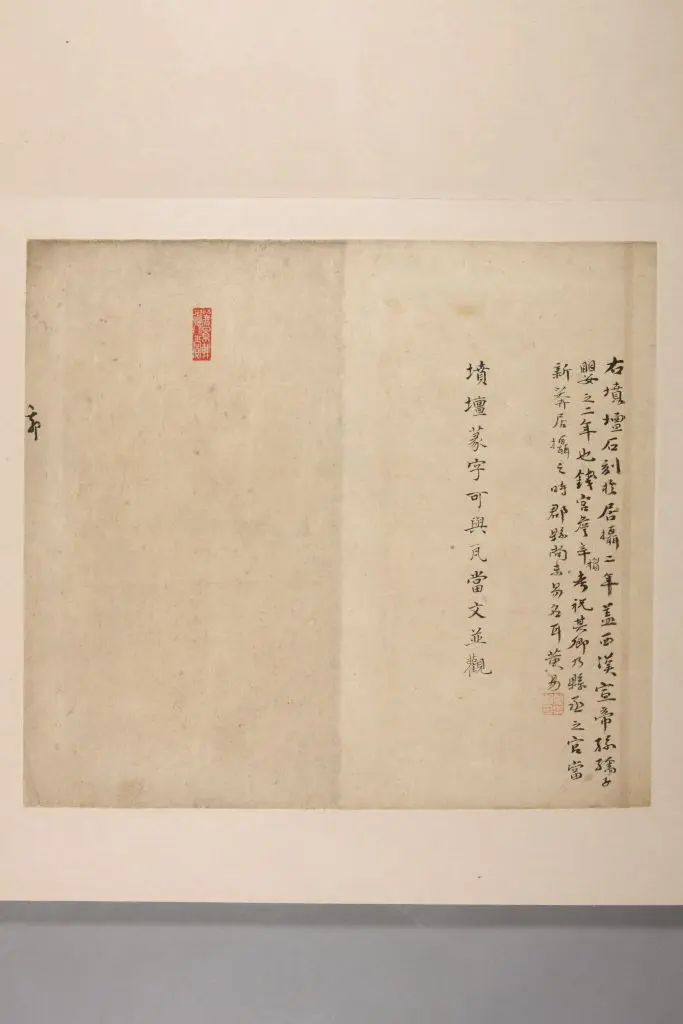 右墳壇石刻於居攝二年蓋西漢宣帝孫孺子
嬰之二年也錢宮詹辛楣考祝其卿乃縣丞之官當
新莽居攝之時郡縣尚未易名耳黃易
墳壇篆字可與瓦當文並觀